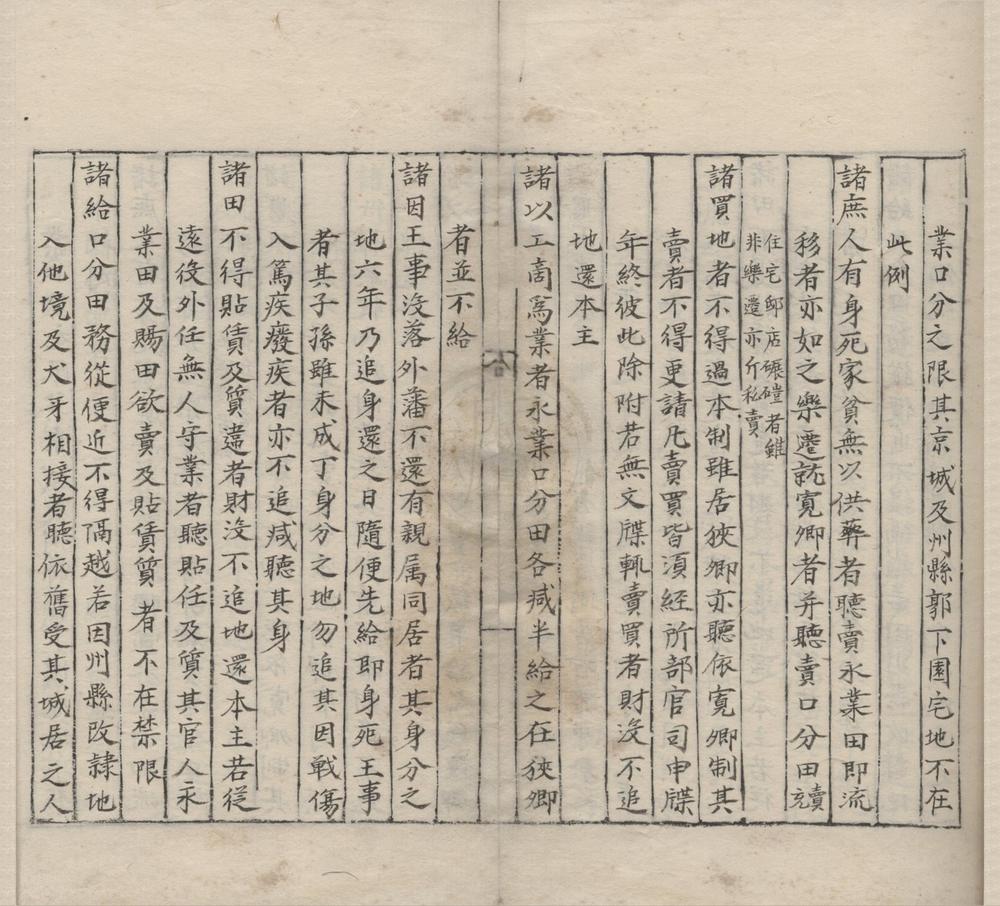 業口分之限其京城及州縣郭下園宅地不在
此例
諸庶人有身死家貧無以供葬者聽賣永業田即流
移者亦如之樂遷就寬鄉者并聽賣口分田
住宅邸店碾磑者雖
非樂遷亦斤私賣
諸買地者不得過本制雖居狹鄉亦聽依寬鄉制其
賣者不得更請凡賣買皆須經所部官司申牒
年終彼此除附若無文牒輒賣買者財沒不追
地還本主
諸以工商為業者永業口分田各減半給之在狹鄉
者並不給
諸因王事沒落外藩不還有親属同居者其身分之
地六年乃追身還之日隨便先給即身死王事
者其子孫雖未成丁身分之地勿追其因戰傷
入篤疾癈疾者亦不追減聽其身
諸田不得貼賃及質違者財沒不追地還本主若從
遠役外任無人守業者聽貼任及質其官人永
業田及賜田欲賣及貼賃質者不在禁限
諸給口分田務從便近不得隔越若因州縣改隸地
入他境及犬牙相接者聽依舊受其城居之人